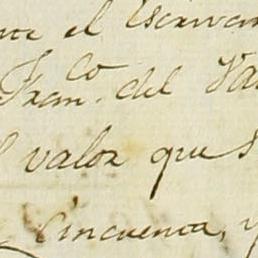 el Escrivan
Fran.co del Va
valor que s
Cincuenta, y